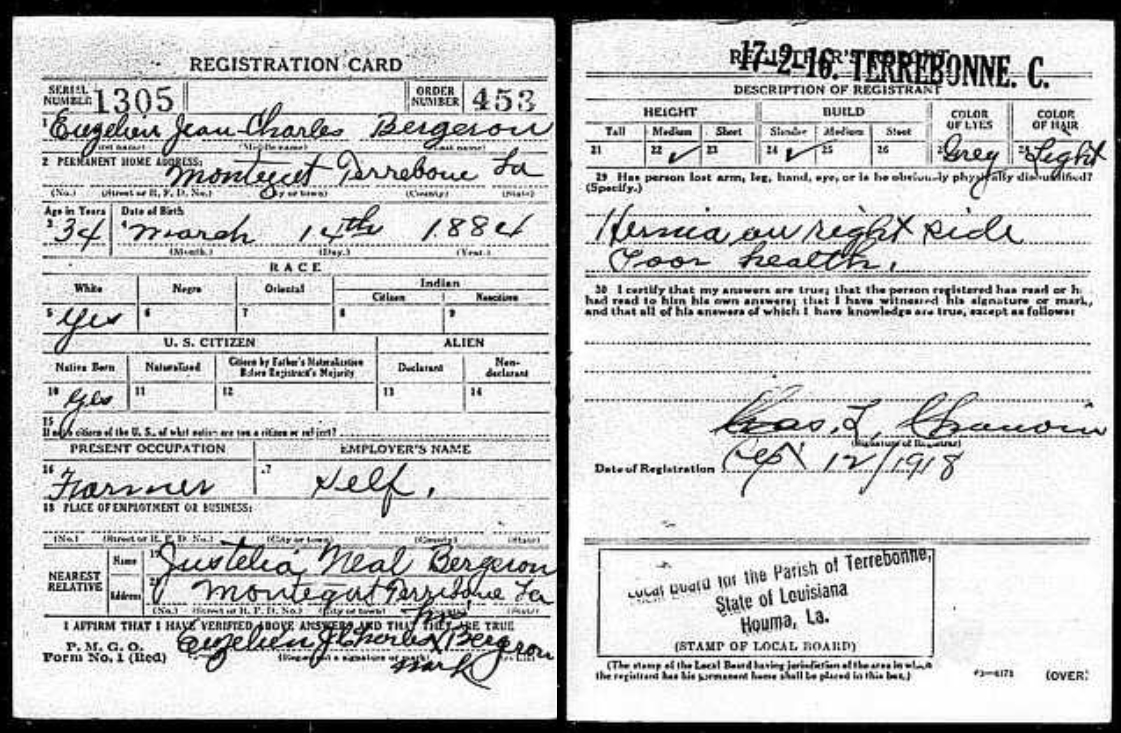 REGISTRATION CARD
SERIAL NUMBER 1305 ORDER NUMBER 453
1 Eugelien Jean-Charles Bergeron
(First name) (Middle name) (Last name)
2 PERMANENT HOME ADDRESS:
Montegut Terrebone La
(No.) (Street or R. F. D. No.) (City or town) (County) (State)
Age in Years Date of Birth
3 34 4 March 14th 1884
(Month.) (Day.) (Year.)
RACE
White Negro Oriental Indian
Citizen Noncitizen
5 Yes 6 7 8 9
U. S. CITIZEN ALIEN
Native Born Naturalized Citizen by Father's Naturalization Before Registrant's Majority Declarant Non-declarant
10 Yes 11 12 13 14
15
If not a citizen of the U. S., of what nation are you a citizen or subject?
PRESENT OCCUPATION EMPLOYER'S NAME
16 Farmer 17 Self.
18 PLACE OF EMPLOYMENT OR BUSINESS:
(No.) (Street or R. F. D. No.) (City or town) (County) (State)
NEAREST RELATIVE
Name 19 Justelia Neal Bergeron
Address 20 Montegut Terrebone La
(No.) (Street or R. F. D. No.) (City or town) (County) (State)
I AFFIRM THAT I HAVE VERIFIED ABOVE ANSWERS AND THAT THEY ARE TRUE
P. M. G. O.
Form No. 1 (Red)
Eugelien J Charles his X mark Bergeron
(Registrant's signature or mark)
REGISTRAR'S REPORT
17-2-16. TERREBONNE. C.
DESCRIPTION OF REGISTRANT
HEIGHT BUILD COLOR OF EYES COLOR OF HAIR
Tall Medium Short Slender Medium Stout
21 22 ✓ 23 24 ✓ 25 26 27 Grey 28 Light
29 Has person lost arm, leg, hand, eye, or is he obviously physically disqualified?
(Specify.)
Hernia on right side
Poor health.
30 I certify that my answers are true; that the person registered has read or h
had read to him his own answers; that I have witnessed his signature or mark,
and that all of his answers of which I have knowledge are true, except as follows:
Chas. L. Chauvin
(Signature of Registrar)
Date of Registration Sept 12/1918
Local Board for the Parish of Terrebonne,
State of Louisiana
Houma, La.
(STAMP OF LOCAL BOARD)
(The stamp of the Local Board having jurisdiction of the area in which
the registrant has his permanent home shall be placed in this box.)
03—6171 (OVER)